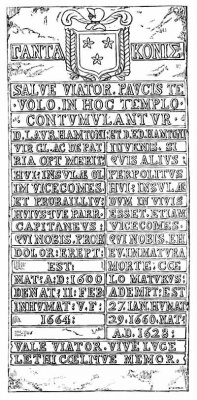 ΠΑΝΤΑ ΚΟΝΙΣ
SALVE VIATOR. PAVCIS TE
VOLO. IN HOC TEMPLO
CONTVMVLANTVR
D. LAVR. HAMTONI ET D. ED. HAMTONI
VIR CL. AC DE PAT IUVENIS. SI
RIA OPT MERIT QVIS ALIVS
HVI: INSVLÆ OL PERPOLITVS
IM VICECOMES HVI: INSVLÆ
ET PROBAILLIV: DVM IN VIVIS
HVIVSQVE PARR. ESSET. ETIAM
CAPITANEVS VICECOMES.
QVI NOBIS. PROH QVI NOBIS. EH
DOLOR: EREPT: EV. IMMATVRA
EST: MORTE. CŒ
MAT: A.D: 1600 LO MATVRVS:
DENAT: 11: FEB ADEMPT: EST
INHVMAT: V. F: 27: IAN. HVMAT
1664: 29: 1660. NAT:
A.D. 1628:
VALE VIATOR. VIVE LVCE
LETHI CŒLIQVE MEMOR.